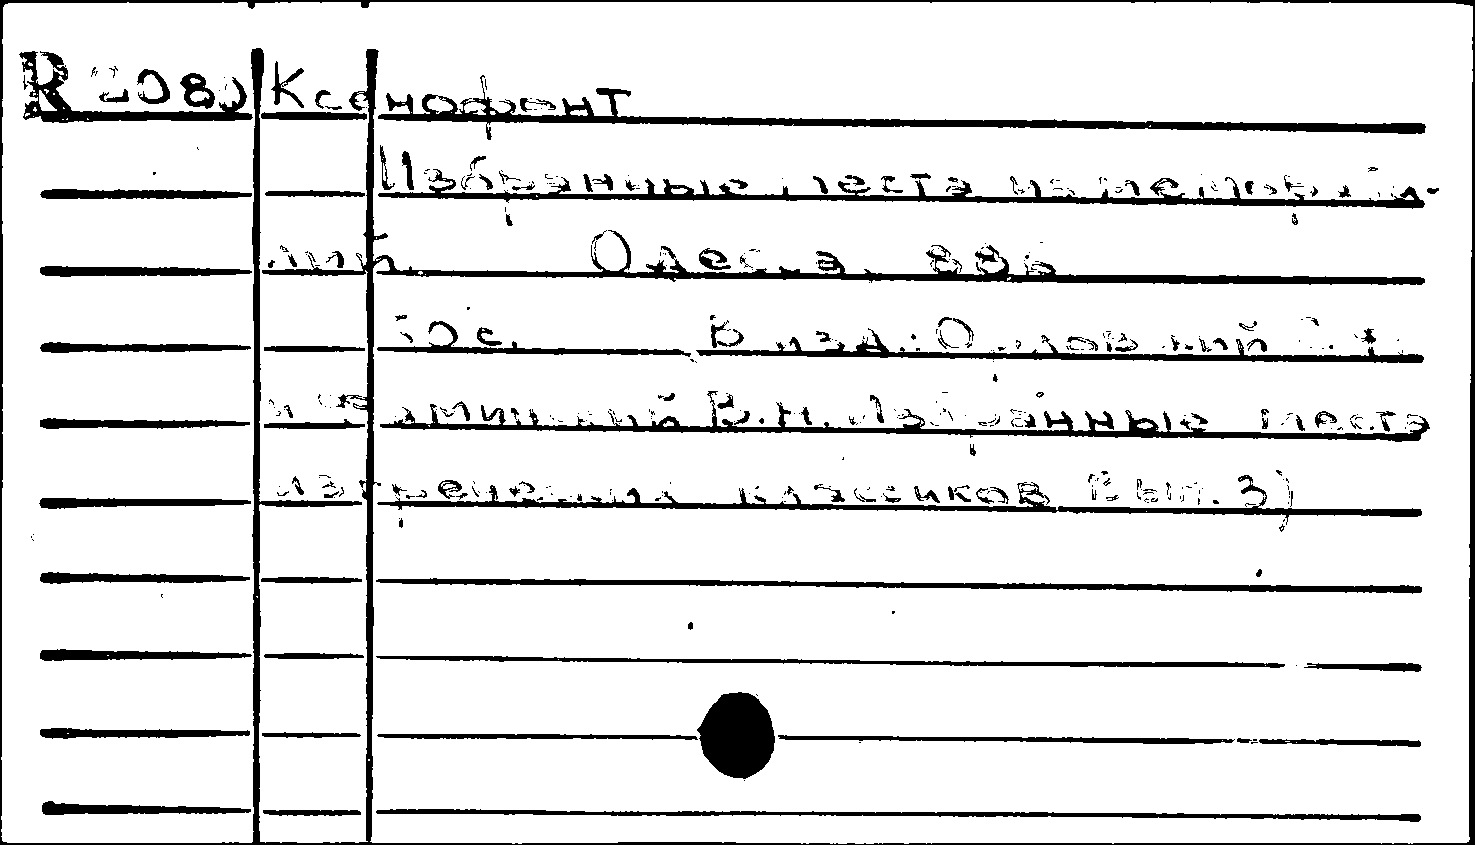 R 2080 Ксенофонт
Избранные места из меморабилий.
Одесса, 886
50 с. В изд.: Орловский
и Фоминский В.Н. Избранные места
из греческих классиков Вып. 3)